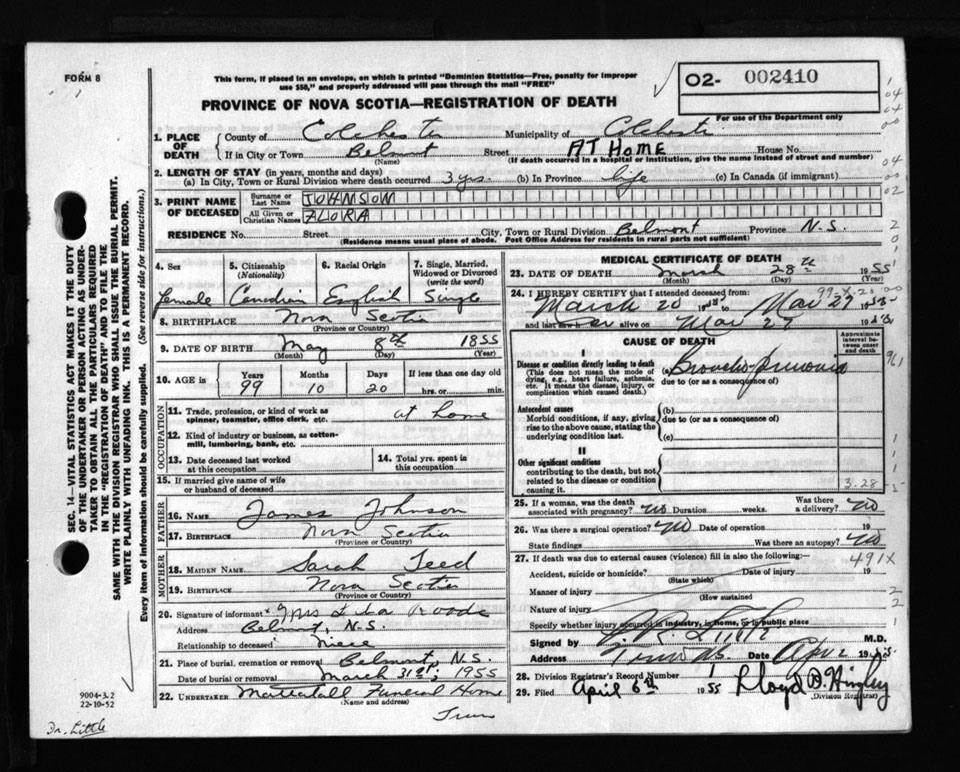 FORM 8
This form, if placed in an envelope, on which is printed "Dominion Statistics—Free, penalty for improper
use $50," and properly addressed will pass through the mail "FREE"
O2- 002410
For use of the Department only
PROVINCE OF NOVA SCOTIA—REGISTRATION OF DEATH
1. PLACE OF DEATH
County of Colchester Municipality of Colchester
If in City or Town Belmont Street AT HOME House No.
(Name) (If death occurred in a hospital or institution, give the name instead of street and number)
2. LENGTH OF STAY (in years, months and days)
(a) In City, Town or Rural Division where death occurred 3 yrs. (b) In Province life (c) In Canada (if immigrant)
3. PRINT NAME OF DECEASED
Surname or Last Name JOHNSON
All Given or Christian Names FLORA
RESIDENCE No. Street City, Town or Rural Division Belmont Province N.S.
(Residence means usual place of abode. Post Office Address for residents in rural parts not sufficient)
4. Sex female
5. Citizenship (Nationality) Canadian
6. Racial Origin English
7. Single, Married, Widowed or Divorced (write the word) Single
8. BIRTHPLACE Nova Scotia
(Province or Country)
9. DATE OF BIRTH May 8th 1855
(Month) (Day) (Year)
10. AGE in Years 99 Months 10 Days 20 If less than one day old hrs. or min.
OCCUPATION
11. Trade, profession, or kind of work as spinner, teamster, office clerk, etc. at home
12. Kind of industry or business, as cotton-mill, lumbering, bank, etc.
13. Date deceased last worked at this occupation
14. Total yrs. spent in this occupation
15. If married give name of wife or husband of deceased
FATHER
16. NAME James Johnson
17. BIRTHPLACE Nova Scotia
(Province or Country)
MOTHER
18. MAIDEN NAME Sarah Teed
19. BIRTHPLACE Nova Scotia
(Province or Country)
20. Signature of informant Mrs
Address Belmont, N.S.
Relationship to deceased niece
21. Place of burial, cremation or removal Belmont, N.S.
Date of burial or removal March 31st, 1955
22. UNDERTAKER Mattatall Funeral Home
(Name and address)
Truro
MEDICAL CERTIFICATE OF DEATH
23. DATE OF DEATH March 28th 1955
(Month) (Day)
24. I HEREBY CERTIFY that I attended deceased from:
99-X-20
March 20 to Mar 27
and last saw h er alive on Mar 27 19
CAUSE OF DEATH
Approximate interval between onset and death
I
Disease or condition directly leading to death
(This does not mean the mode of dying, e.g., heart failure, asthenia, etc. It means the disease, injury, or complication which caused death.)
(a) Broncho pneumonia
due to (or as a consequence of)
Antecedent causes
Morbid conditions, if any, giving rise to the above cause, stating the underlying condition last.
(b)
due to (or as a consequence of)
(c)
II
Other significant conditions
contributing to the death, but not related to the disease or condition causing it.
3-28
25. If a woman, was the death associated with pregnancy? no Duration weeks. Was there a delivery? no
26. Was there a surgical operation? no Date of operation 19
State findings Was there an autopsy? no
27. If death was due to external causes (violence) fill in also the following:—
491X
Accident, suicide or homicide? Date of injury 19
(State which)
Manner of injury
(How sustained
Nature of injury
Specify whether injury occurred in industry, in home, or in public place
Signed by M.D.
Address Truro N.S. Date Apr 2 19
28. Division Registrar's Record Number 1
29. Filed April 6th 1955 Lloyd D. Hingley
(Division Registrar)
SEC. 14—VITAL STATISTICS ACT MAKES IT THE DUTY
OF THE UNDERTAKER OR PERSON ACTING AS UNDER-
TAKER TO OBTAIN ALL THE PARTICULARS REQUIRED
IN THE "REGISTRATION OF DEATH" AND TO FILE THE
SAME WITH THE DIVISION REGISTRAR WHO SHALL ISSUE THE BURIAL PERMIT.
WRITE PLAINLY WITH UNFADING INK. THIS IS A PERMANENT RECORD.
Every item of information should be carefully supplied. (See reverse side for instructions.)
9004-3.2
22-10-52
Dr. Little